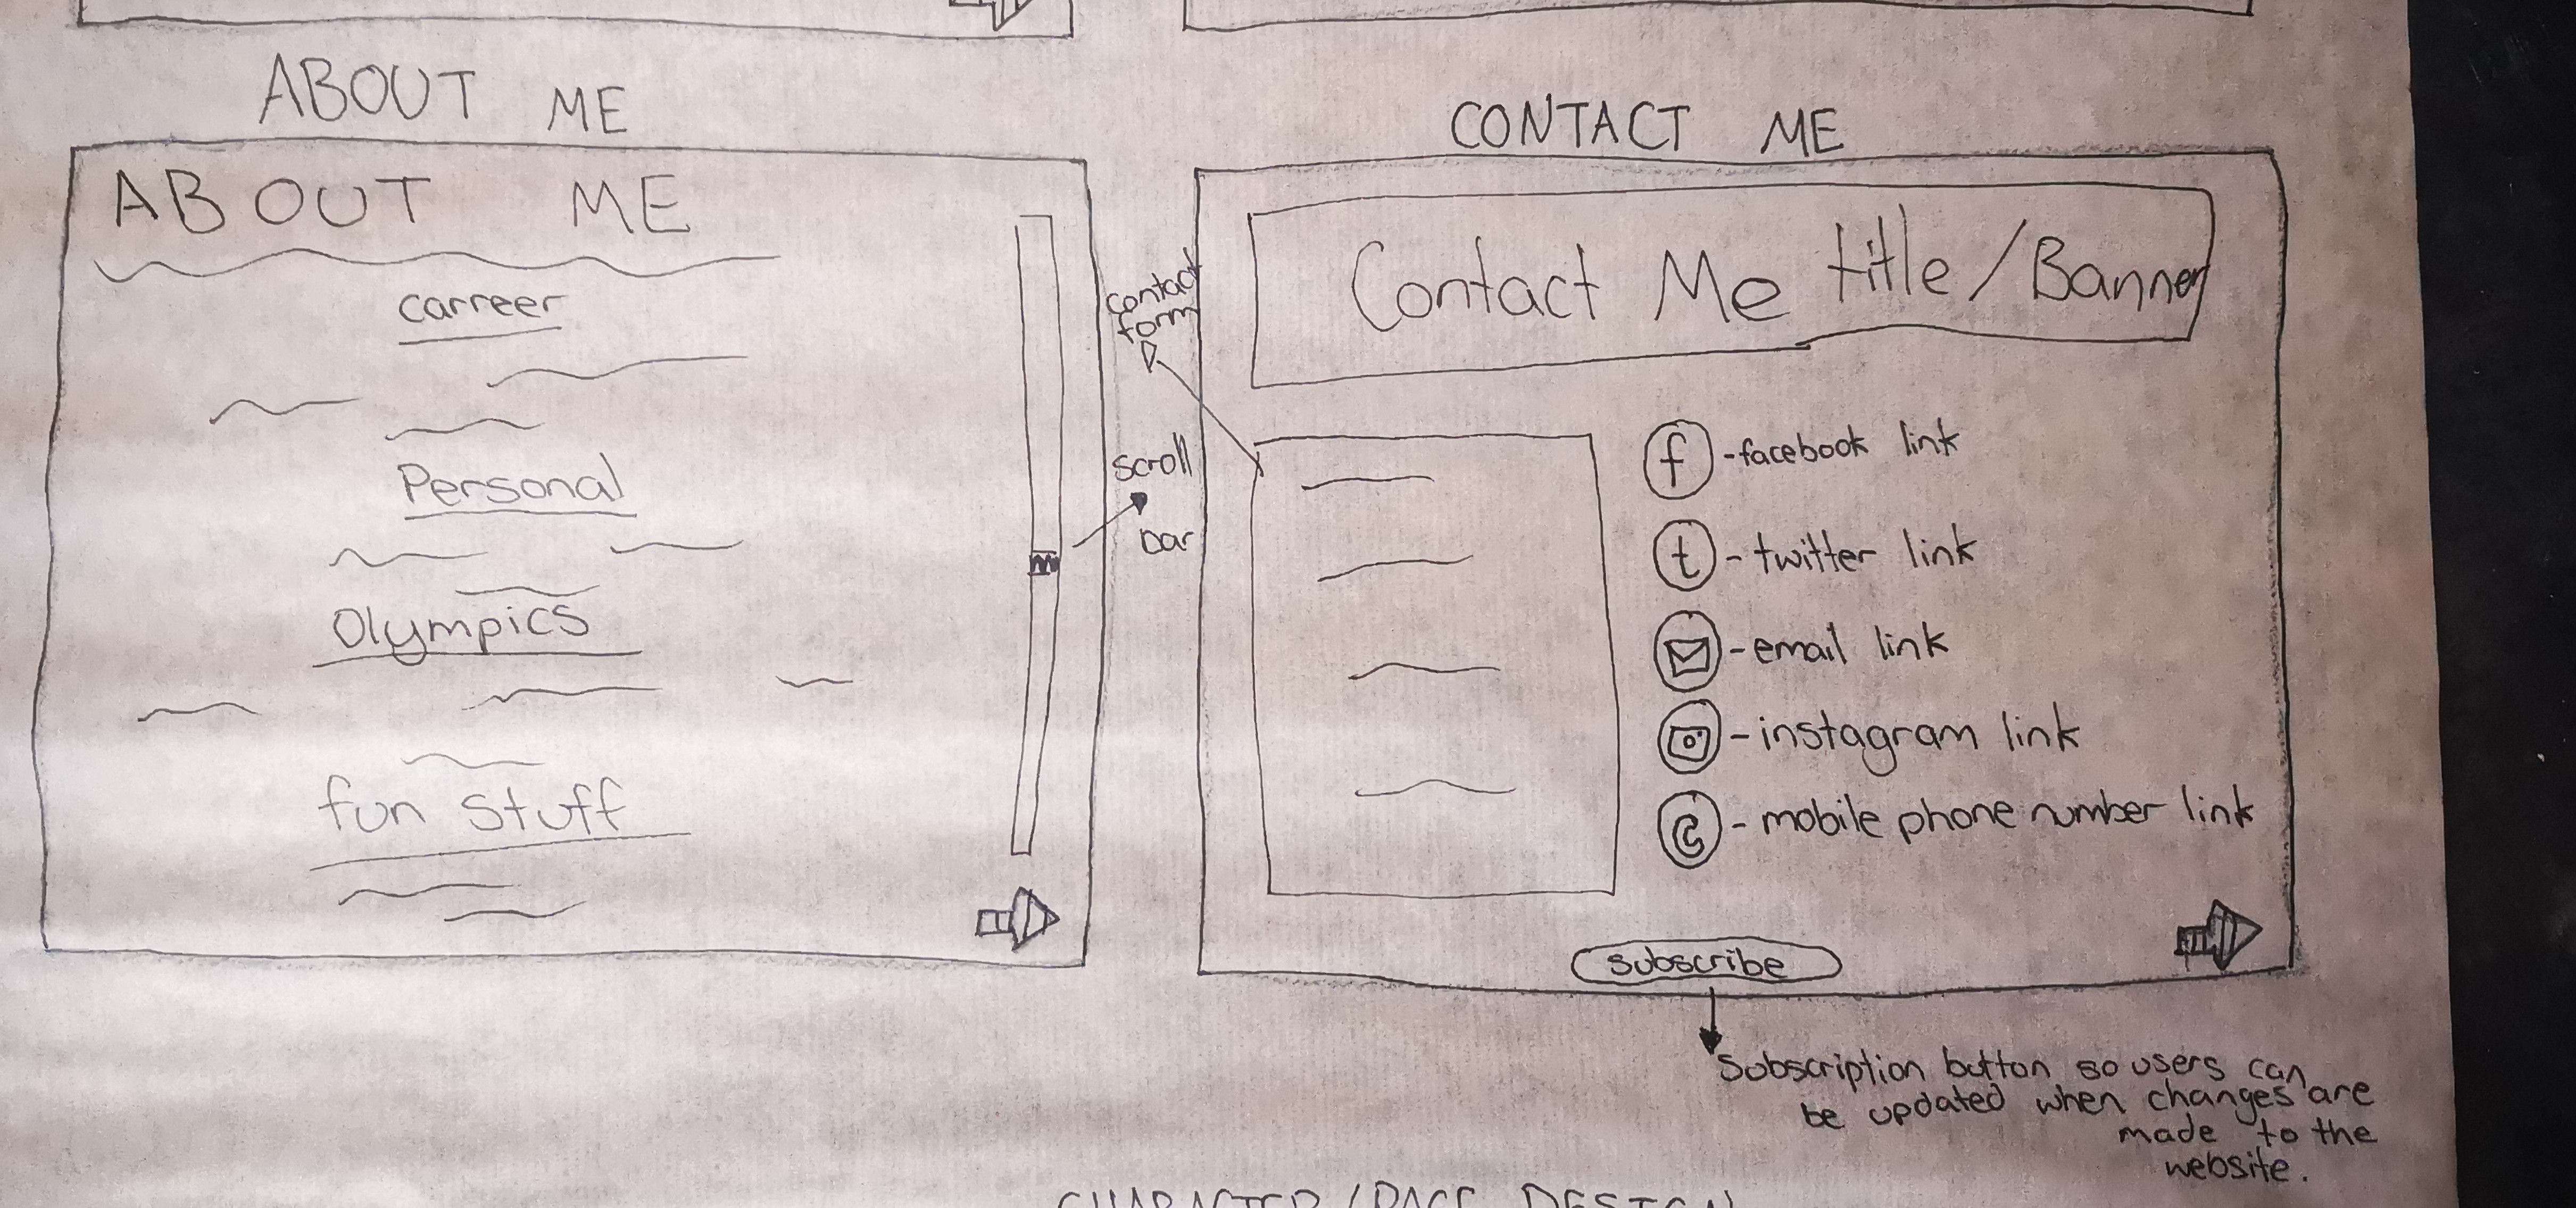 ABOUT ME
ABOUT ME
carreer
Personal
Olympics
fun stuff
scroll
bar
CONTACT ME
Contact Me title/Banner
contact
form
f -facebook link
t - twitter link
- email link
- instagram link
c - mobile phone number link
subscribe
Subscription button so users can
be updated when changes are
made to the
website.
CHARACTER/PAGE DESIGN